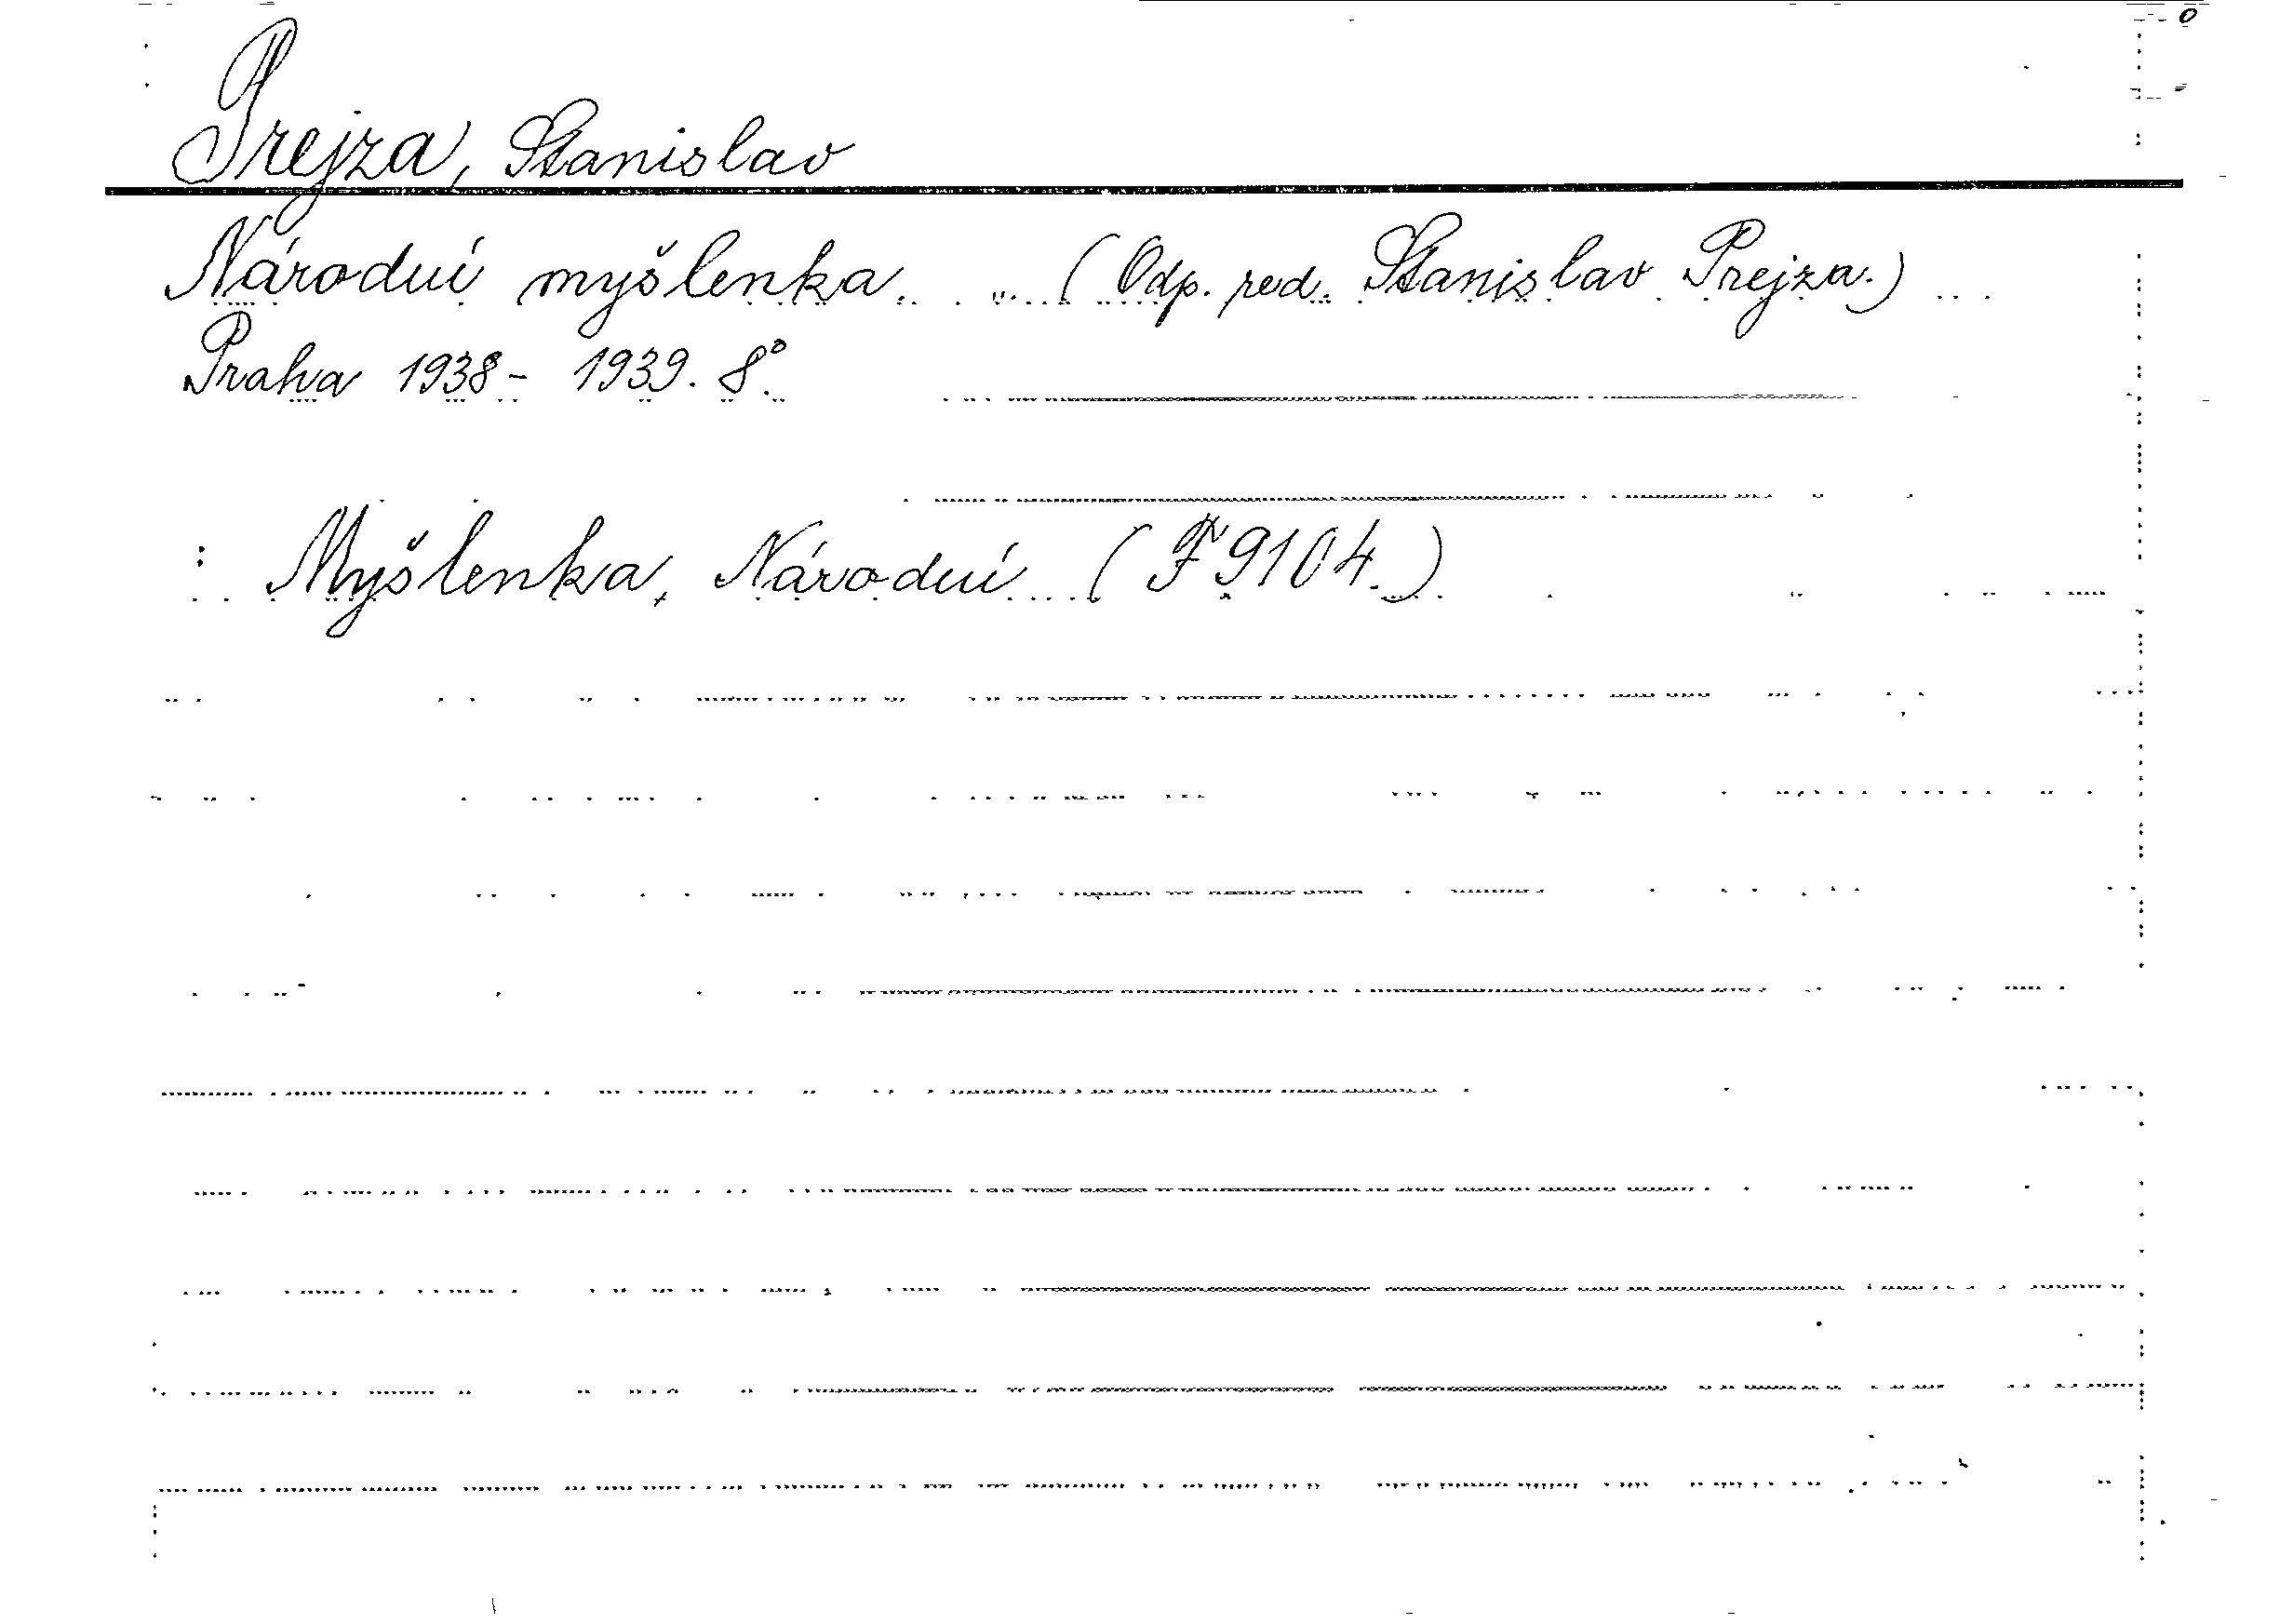 Prejza, Stanislav
Národní myšlenka. ... (Odp. red. Stanislav Prejza.) ...
Praha 1938 - 1939. 8°.
: Myšlenka, Národní (F 9104.)